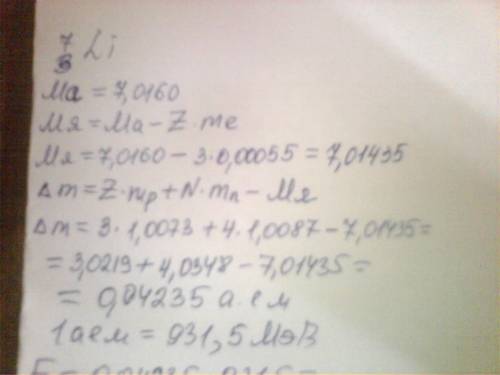 7
3 Li
Ma = 7,0160
Mя = Ma − Z · me
Mя = 7,0160 − 3 · 0,00055 = 7,01435
Δm = Z · mp + N · mn − Mя
Δm = 3 · 1,0073 + 4 · 1,0087 − 7,01435 =
= 3,0219 + 4,0348 − 7,01435 =
= 0,04235 а.е м
1 а е м = 931,5 МэВ